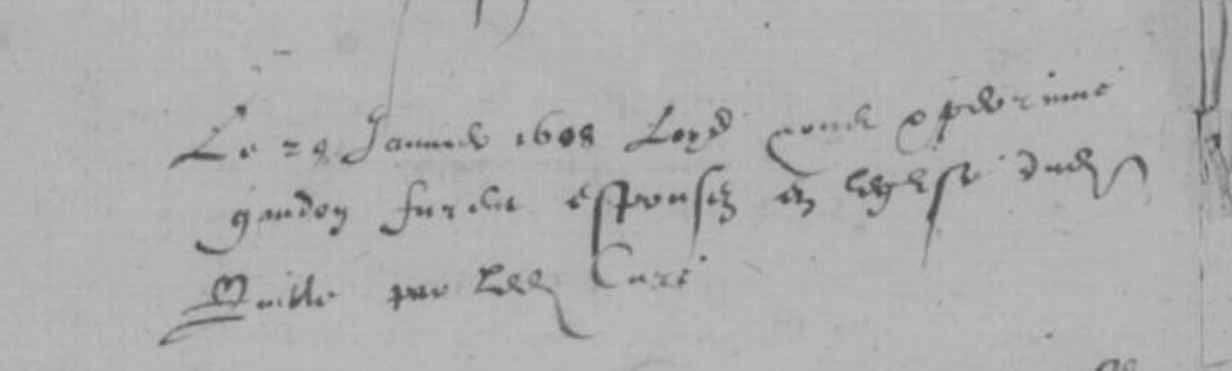 Le 29 Janvier 1608 Loys et perrine
gaudon furent espousez en leglise dud
par led Curé